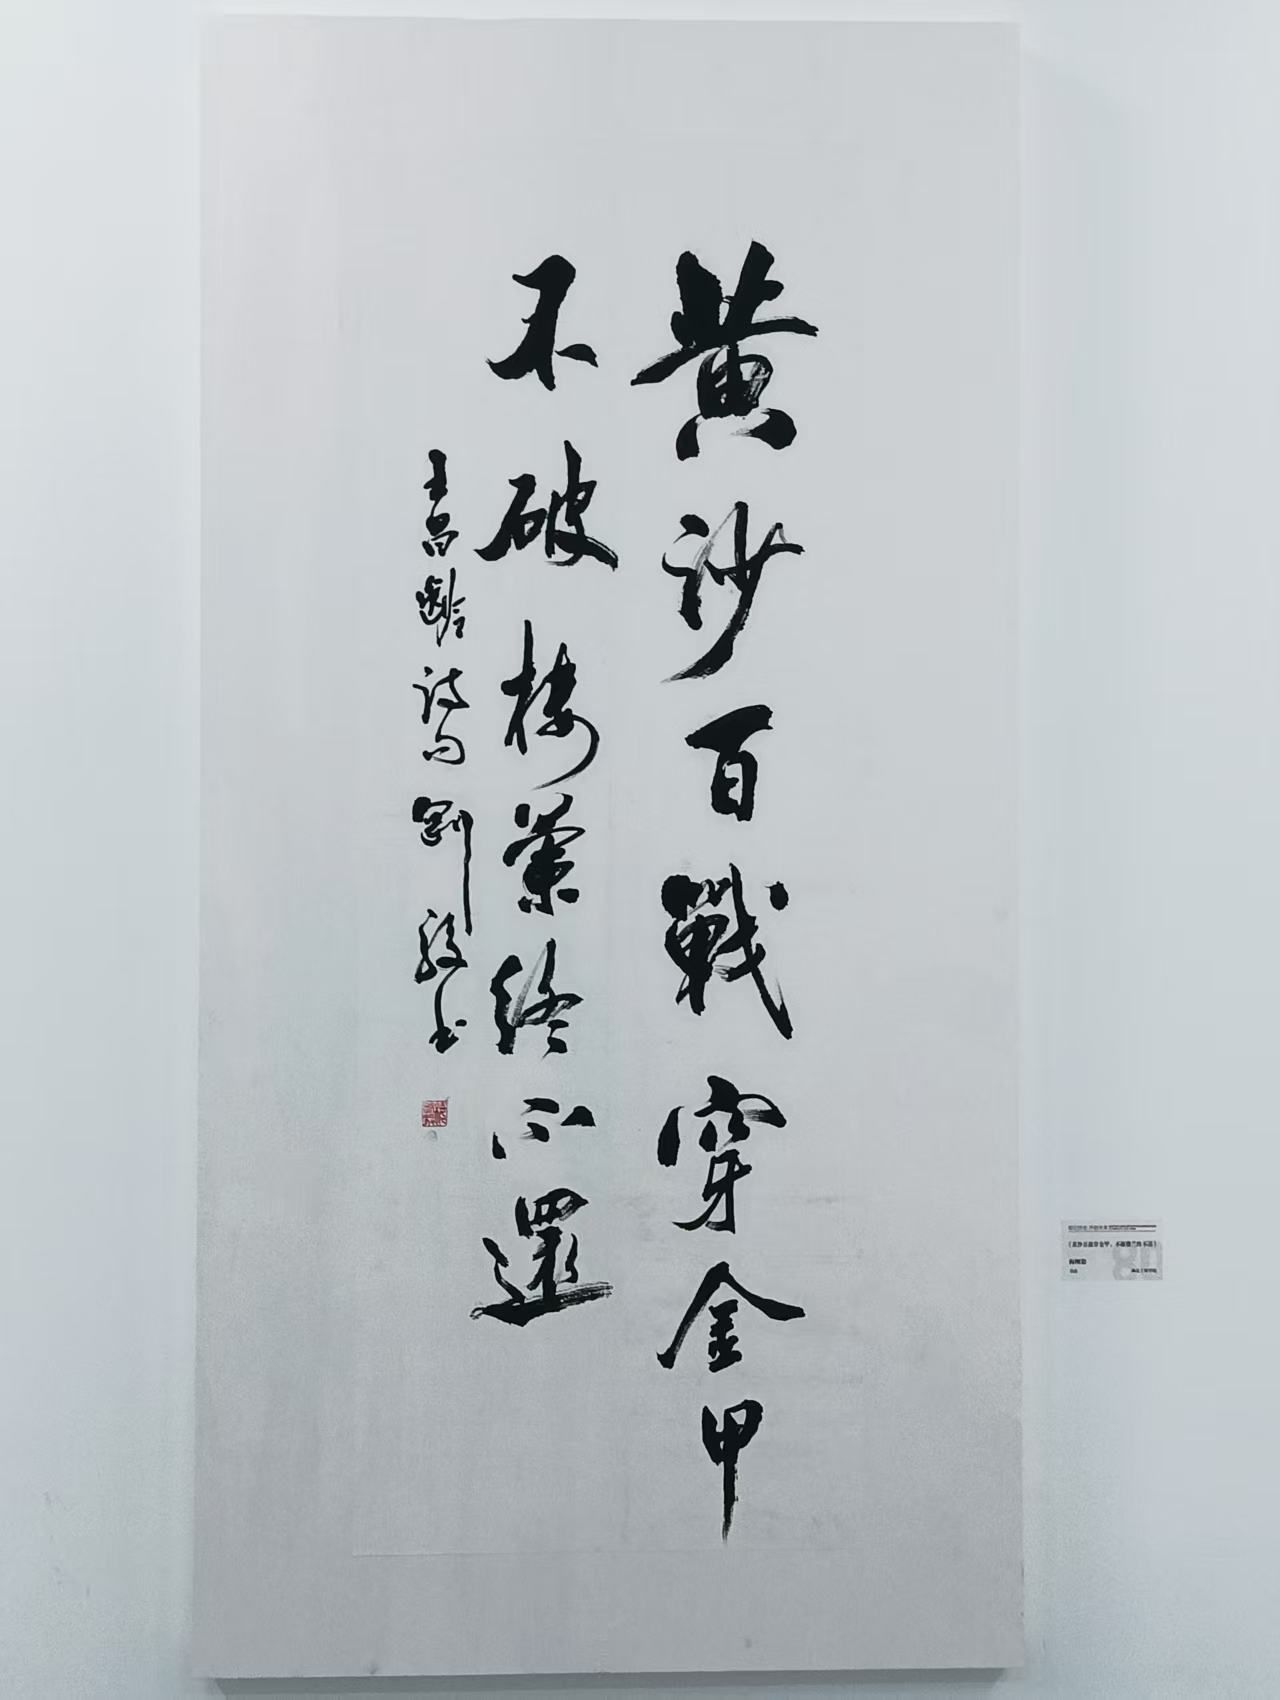 黄沙百戰穿金甲
不破楼蘭終不還
王昌齡詩句 劉毅书
《黄沙百战穿金甲，不破楼兰终不还》
80